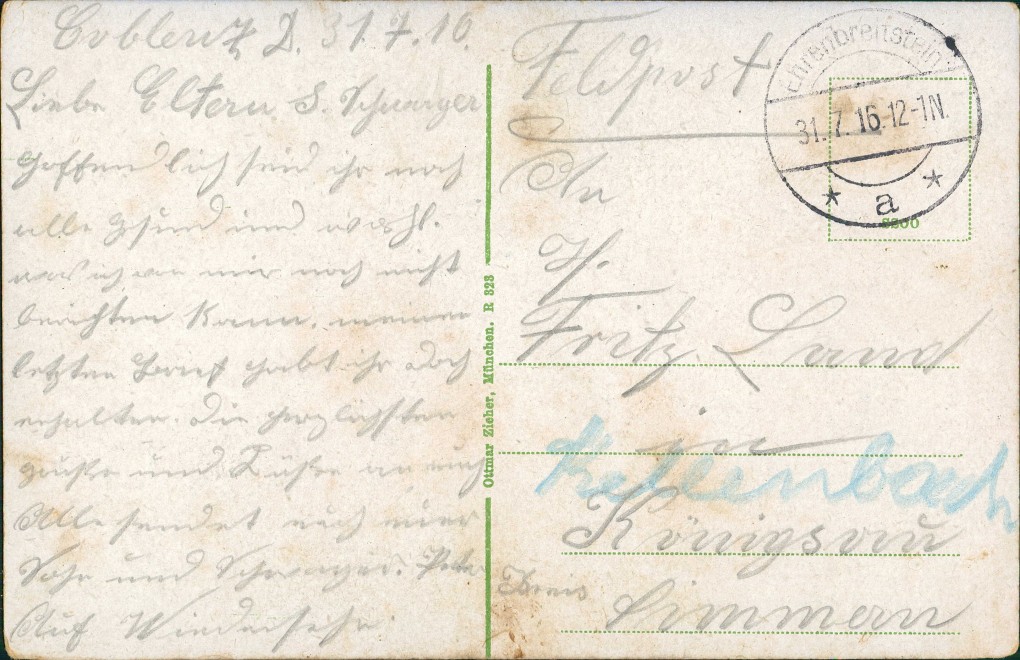 Coblenz D. 31.7.16.
Liebe Eltern u. Schwager
Hoffendlich seid ihr noch
alle gesund und wohl.
was ich von mir noch nicht
berichten kann. meinen
letzten Brief habt ihr doch
erhalten. Die herzlichsten
grüße und Küße an euch
Alle sendet euch euer
Sohn und Schwager. Peter
Auf Wiedersehn
Ottmar Zieher, München. R 323
Feldpost
Ehrenbreitstein
31.7.16.12-1N.
* a *
An
H.
Fritz Land
in
Kellenbach
Königsau
Kreis
Simmern